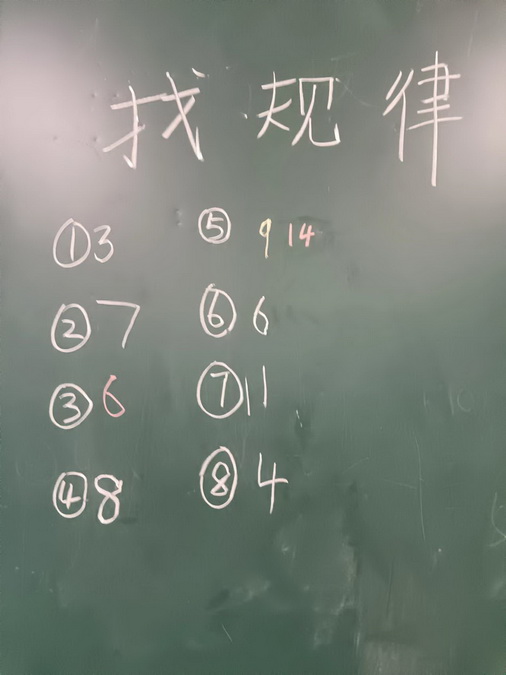 找规律
①3
②7
③6
④8
⑤ 9 14
⑥ 6
⑦11
⑧ 4